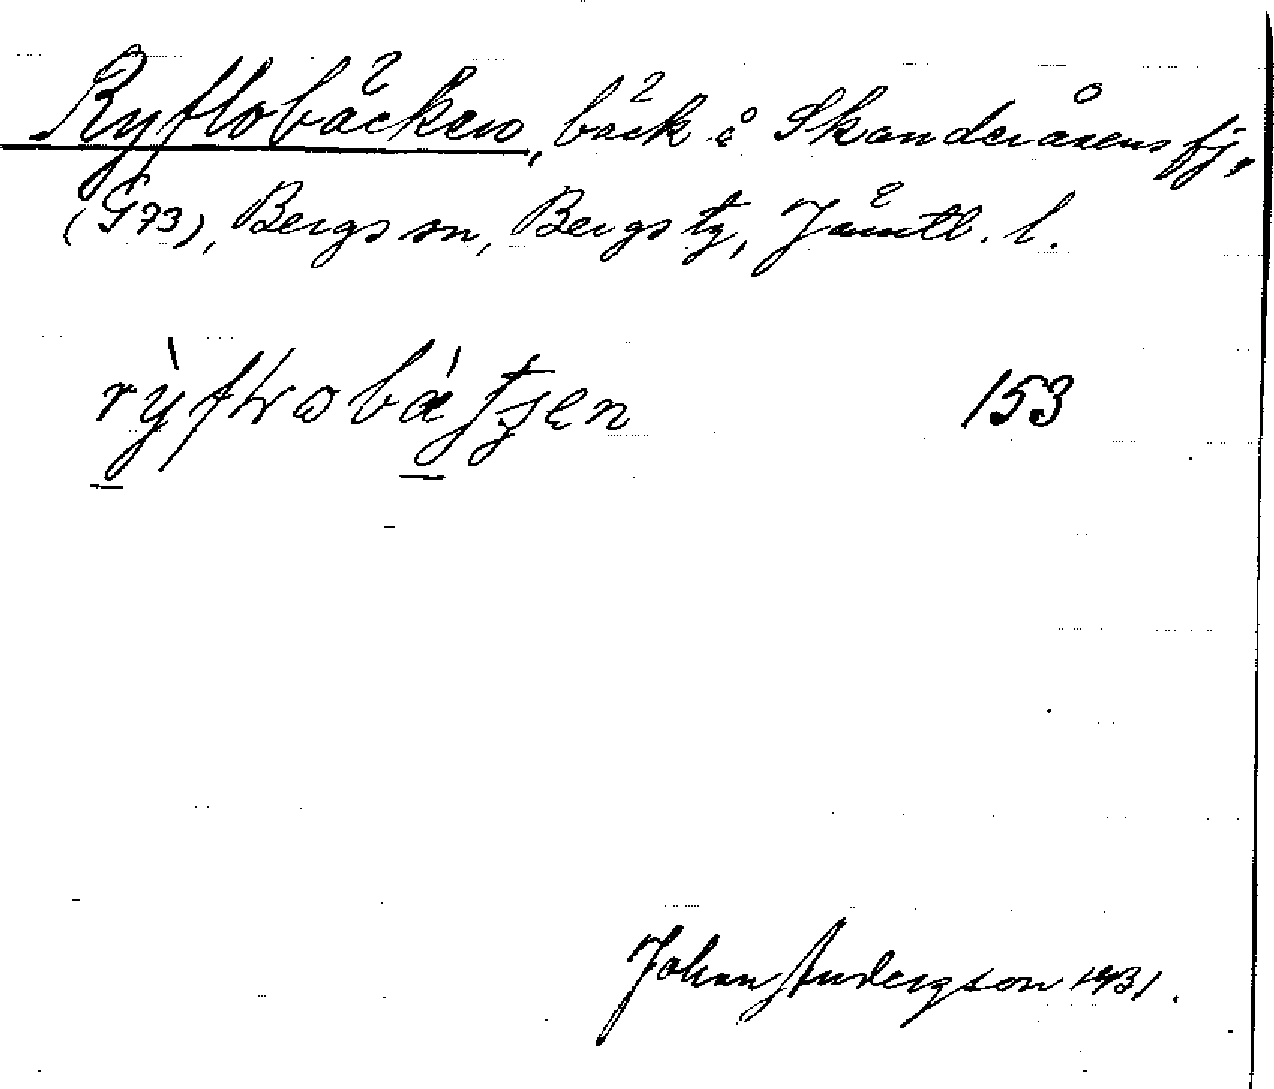 Ryflobäcken, bäck i Skanderåsens fj.
(G73), Bergs sn, Bergs tg, Jämtl. l.
153
Johan Andersson 1931.